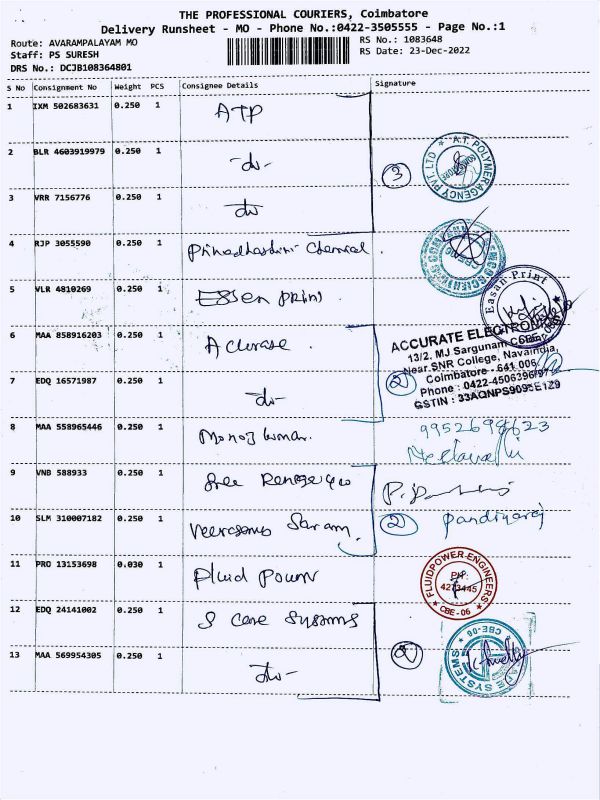 THE PROFESSIONAL COURIERS, Coimbatore
Delivery Runsheet - MO - Phone No.:0422-3505555 - Page No.:1
Route: AVARAMPALAYAM MO
RS No.: 1083648
Staff: PS SURESH
RS Date: 23-Dec-2022
DRS No.: DCJB108364801
S No Consignment No Weight PCS Consignee Details Signature
1 IXM 502683631 0.250 1 ATP
2 BLR 4603919979 0.250 1 -do-
3 VRR 7156776 0.250 1 do
3
A.T. POLYMER AGENCY PVT. LTD
4 RJP 3055590 0.250 1 Chemical
5 VLR 4810269 0.250 1 Essen print
Easan Print
6 MAA 858916203 0.250 1 Accurate
ACCURATE ELECTRONICS
13/2. MJ Sargunam
Near SNR College, Navaindia,
Coimbatore - 641 006.
Phone : 0422-4506396/97
GSTIN : 33AQNPS9095E1Z9
2
7 EDQ 16571987 0.250 1 -do-
8 MAA 558965446 0.250 1 Manoj kumar.
9952698623
9 VNB 588933 0.250 1 Sree
10 SLM 310007182 0.250 1
2 Pandiyaraj
11 PRO 13153698 0.030 1 Fluid Power
FLUIDPOWER ENGINEERS
PH:
4273445
CBE-06
12 EDQ 24141002 0.250 1 S Care Systems
13 MAA 569954305 0.250 1 do-
2
CBE-06
SYSTEMS